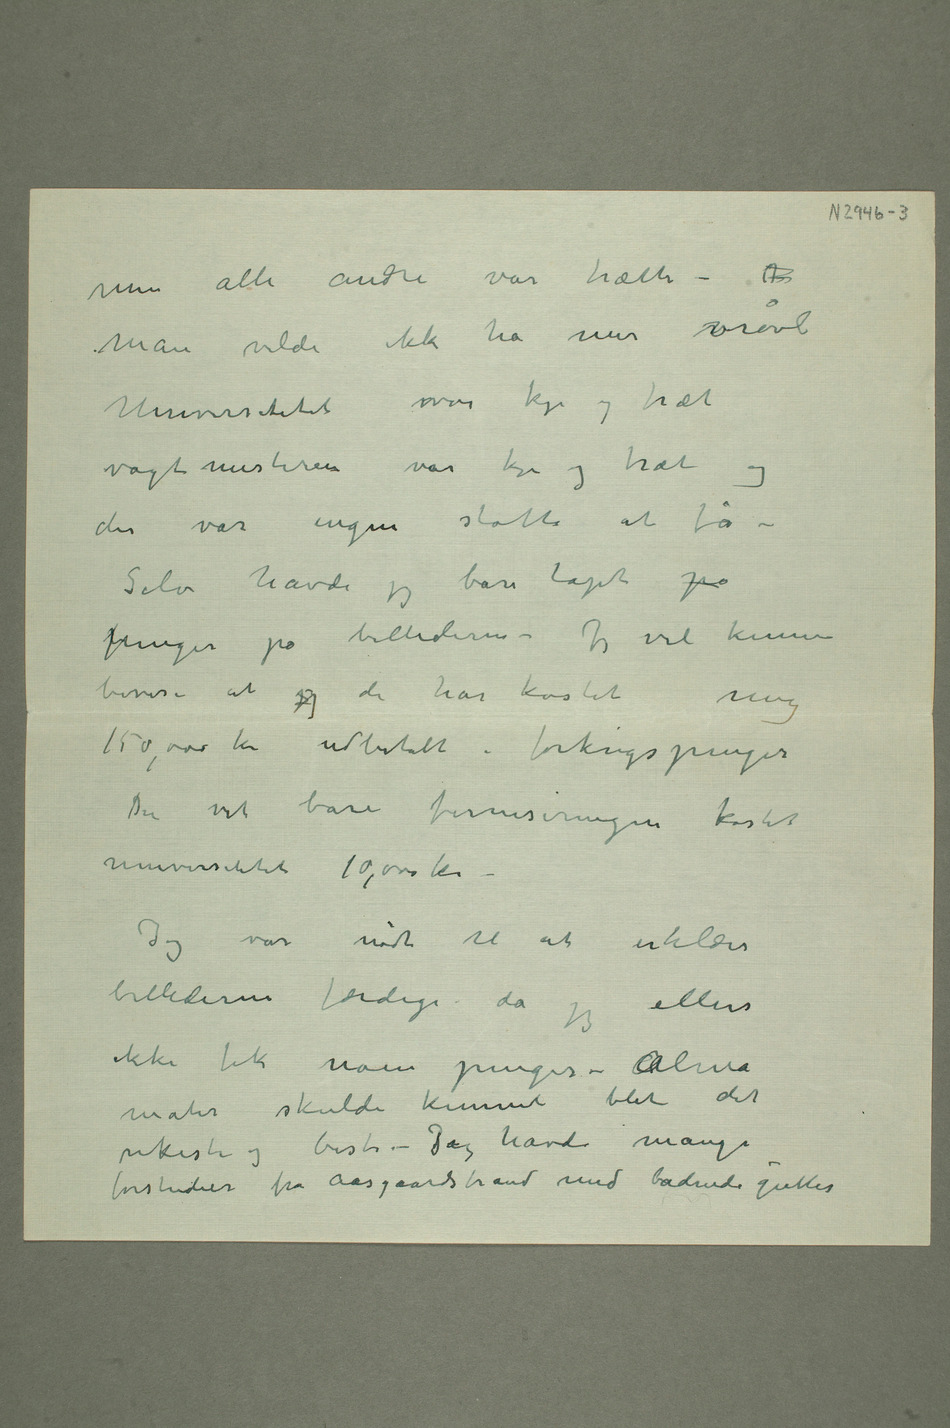 N2946-3
men alle andre var trætte –
Man vilde ikke ha mer vrøvl
Universitetet var kje og træt
vagtmesteren var kje og træt og
der var ingen støtte at få –
Selv havde jeg bare tapt på
penger på billederne – Jeg vil kunne
bevise at jeg de har kostet mig
150,000 kr udbetalt i førkrigspenger
Du vet bare ferniseringen kostet
universitetet 10,000 kr –
Jeg var nødt til at erklære
billederne færdige da jeg ellers
ikke fik noen penger – Alma
mater skulde kunnet blet det
rikeste og beste – Jeg havde mange
forstudier fra Aasgaardstrand med badende gutter